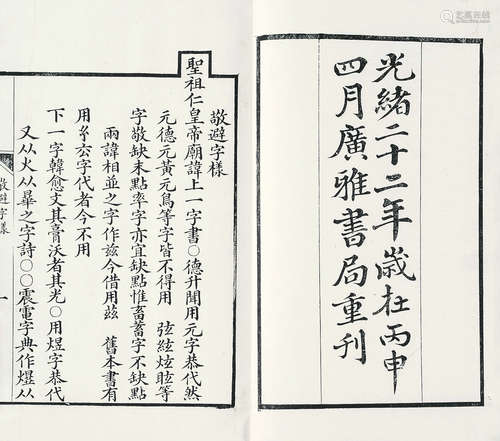 光緒二十二年歲在丙申
四月廣雅書局重刊
敬避字樣
聖祖仁皇帝廟諱上一字書○德升聞用元字恭代然
元德元黃元鳥等字皆不得用 弦絃炫眩等
字敬缺末點率字亦宜缺點惟畜蓄字不缺點
兩諱相並之字作玆今借用茲 舊本書有
用𢆯六字代者今不用
下一字韓愈文其膏沃者其光○用煜字恭代
又从火从𦾔之字詩○○震電字典作爗从
敬避字樣
一